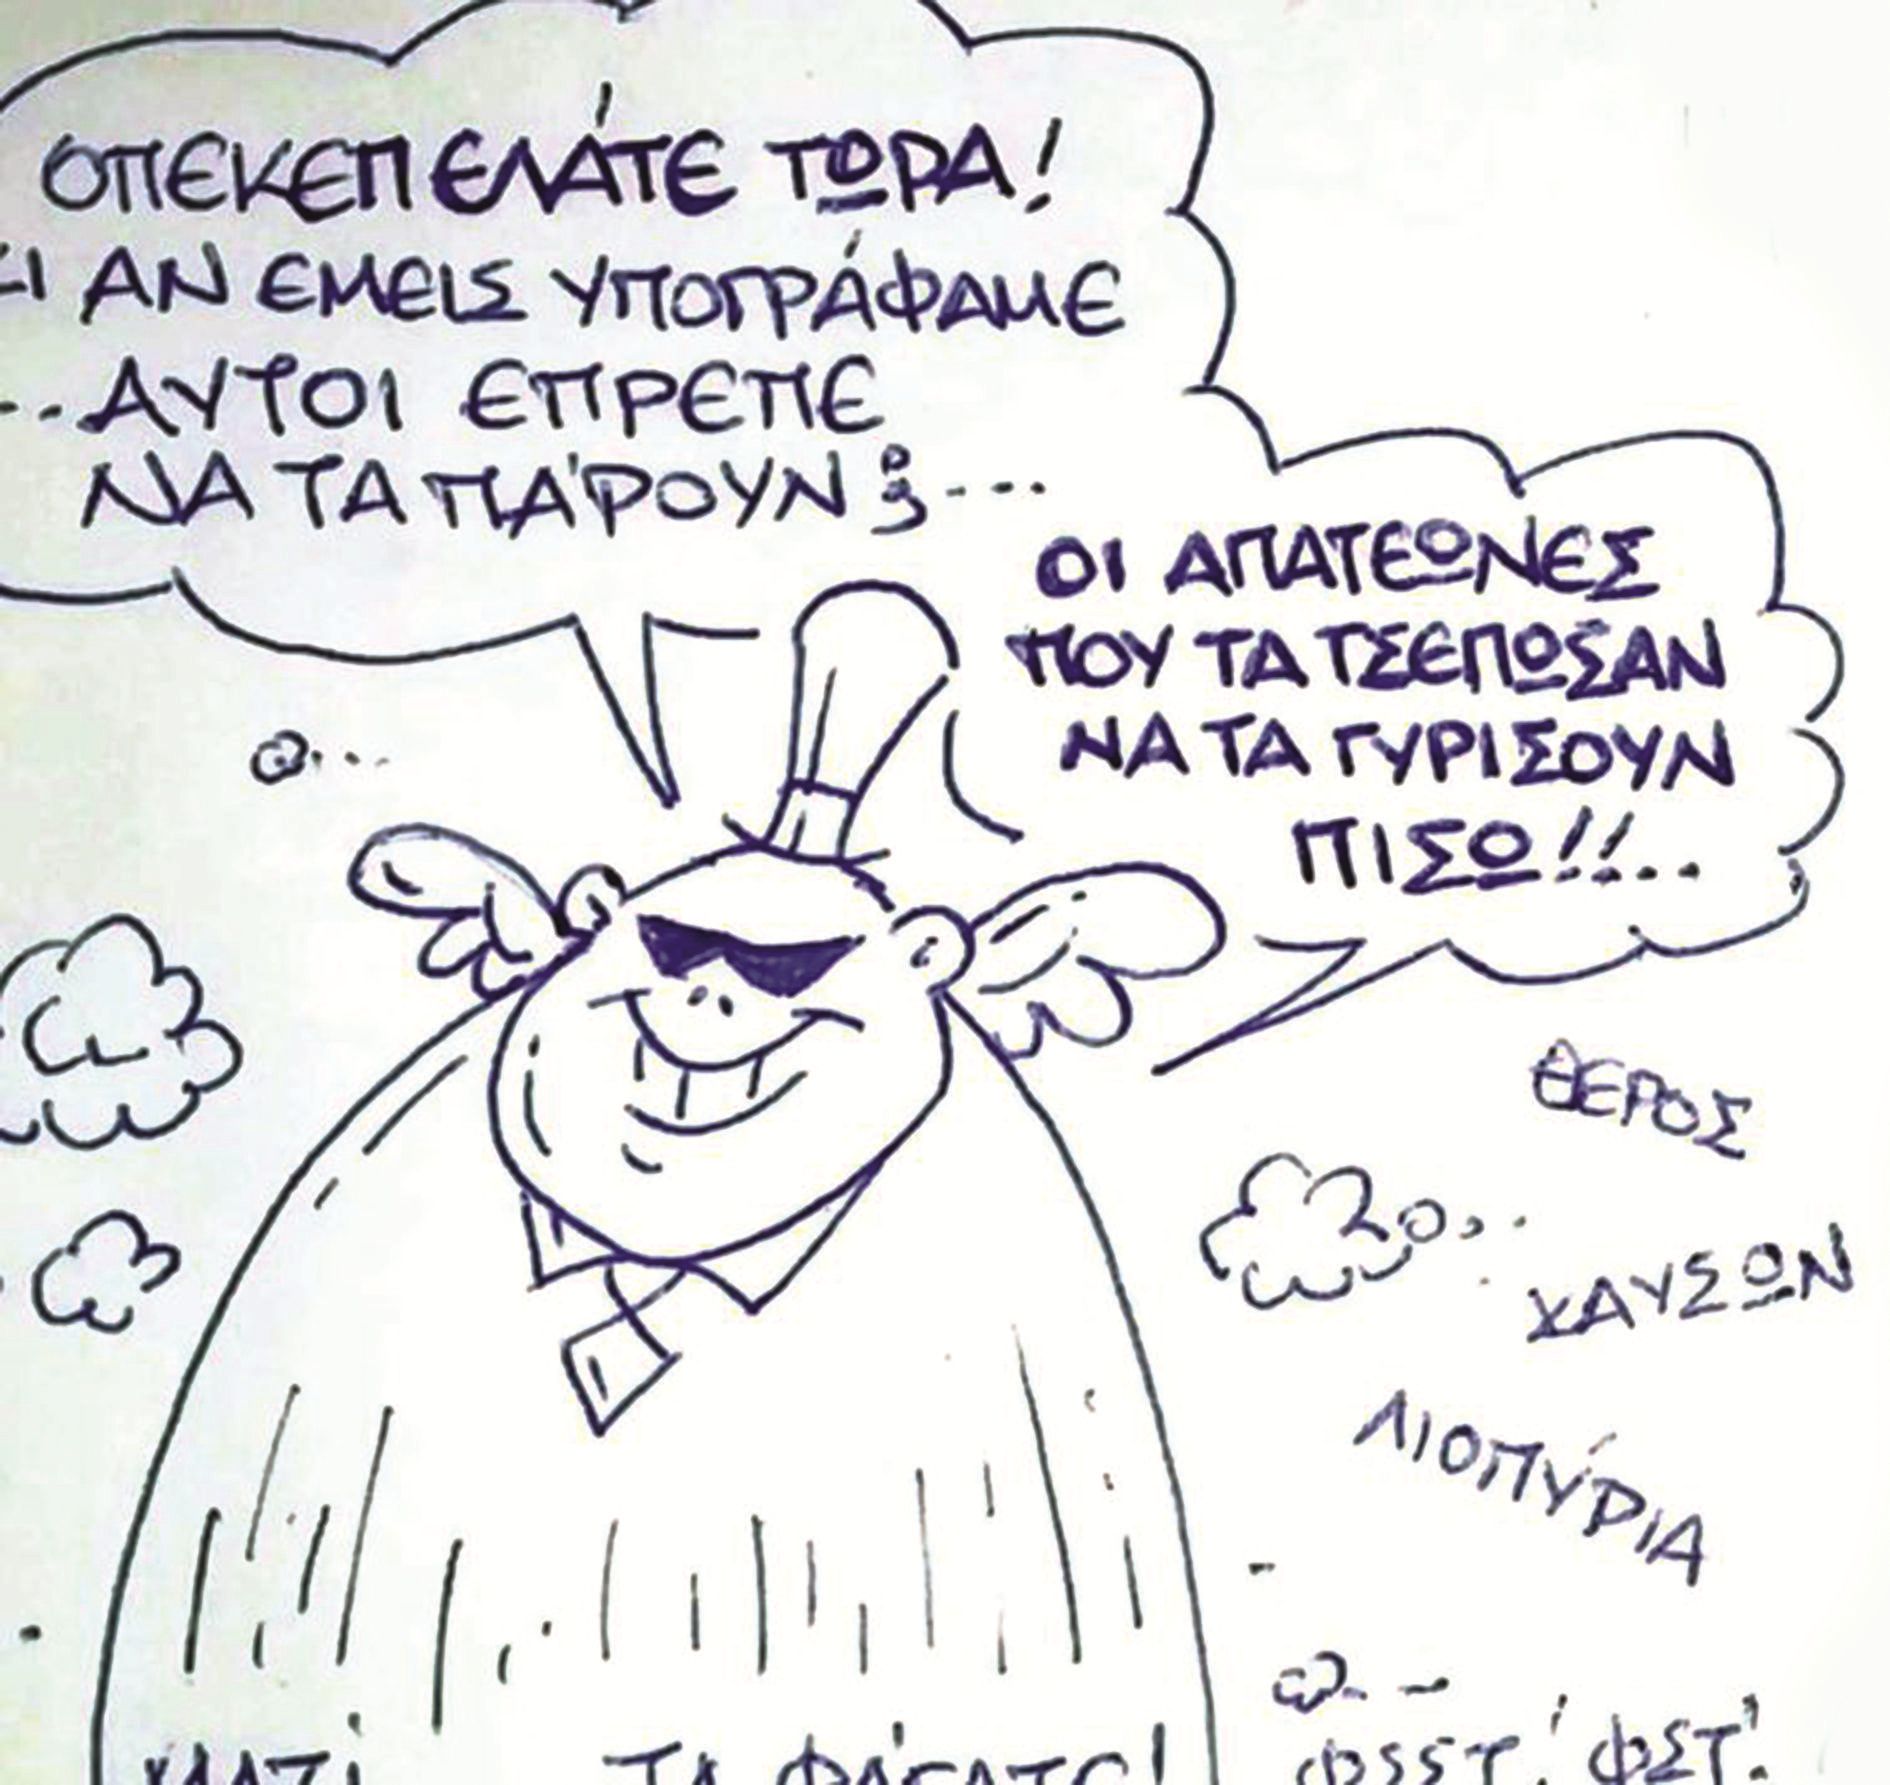 ΟΠΕΚΕΠΕΛΑΤΕ ΤΩΡΑ!
ΑΝ ΕΜΕΙΣ ΥΠΟΓΡΑΦΑΜΕ
..ΑΥΤΟΙ ΕΠΡΕΠΕ
ΝΑ ΤΑ ΠΑΡΟΥΝ;...
ΟΙ ΑΠΑΤΕΩΝΕΣ
ΠΟΥ ΤΑ ΤΣΕΠΩΣΑΝ
ΝΑ ΤΑ ΓΥΡΙΣΟΥΝ
ΠΙΣΩ!!...
ΘΕΡΟΣ
ΧΑΥΣΩΝ
ΛΙΟΠΥΡΙΑ
ΤΑ ΦΑΓΑΤΕ!